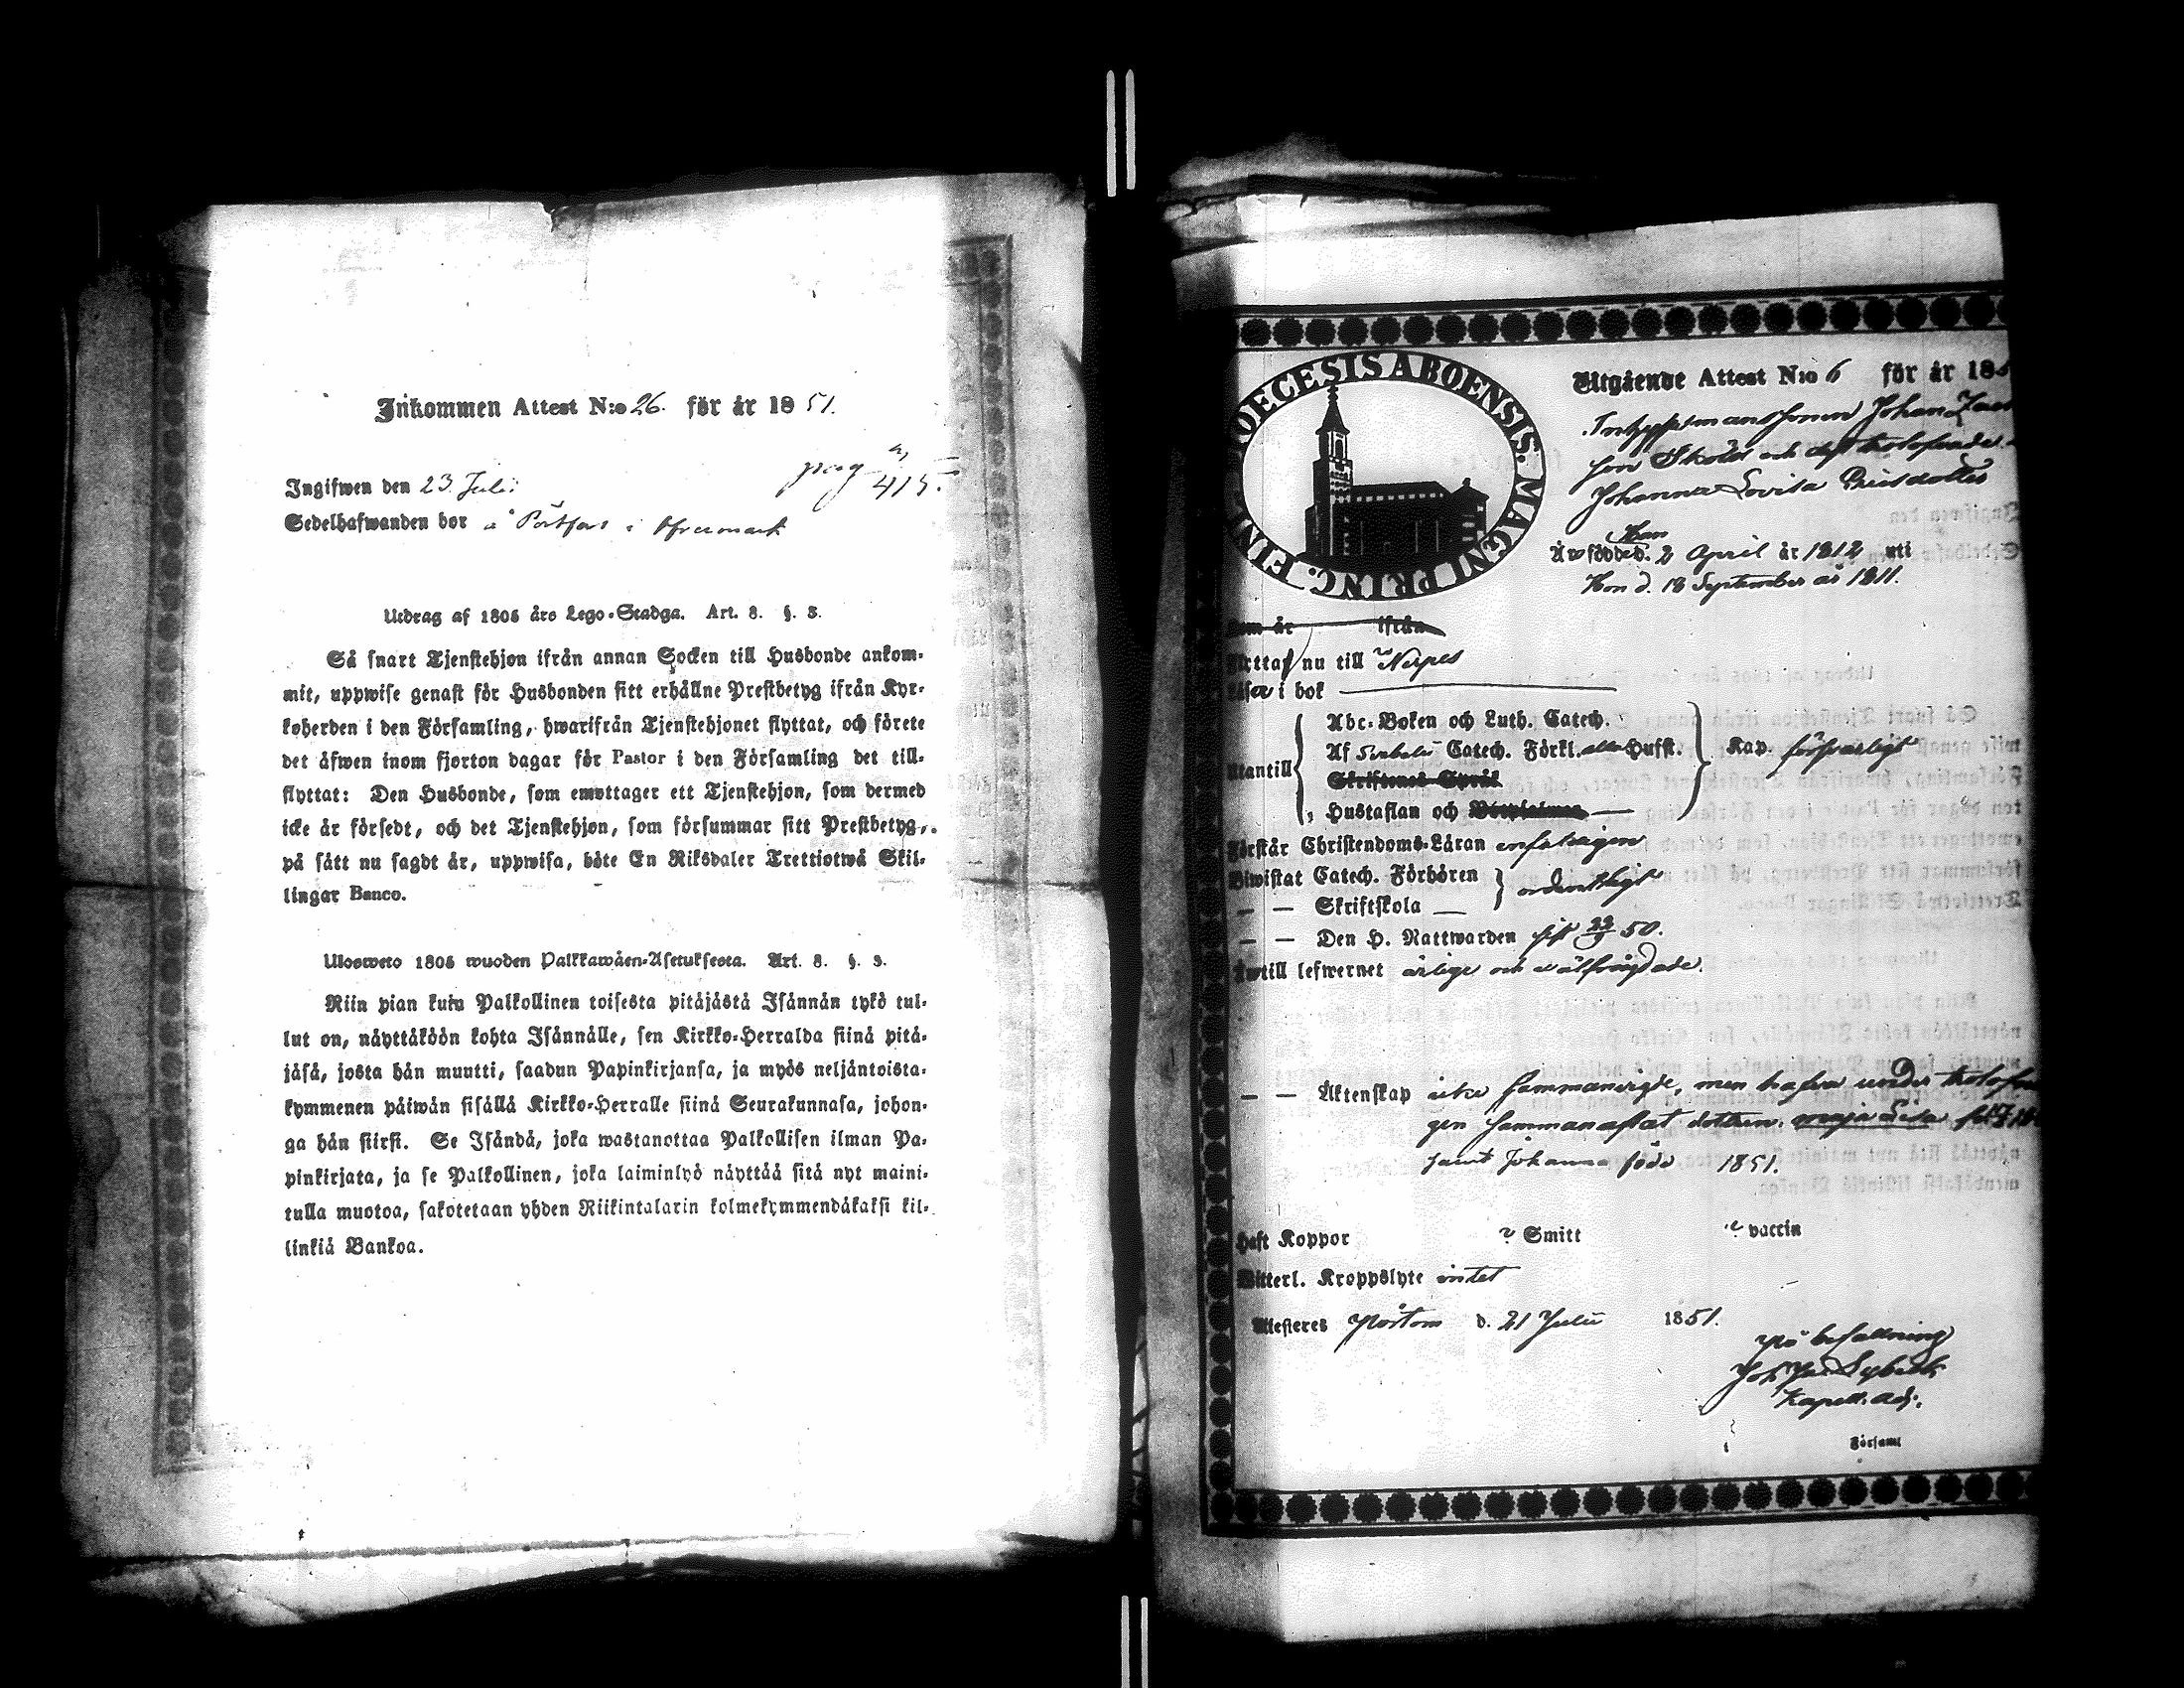 Inkommen Attest N:o 26. för år 1851.
pag 415.
Ingifwen den 23 Juli
Sedelhafwanden bor å Pörtfors i Öfvermark
Utdrag af 1805 års Lego-Stadga. Art. 8. §. 3.
Så snart Tjenstehjon ifrån annan Socken till Husbonde ankom-
mit, uppwise genast för Husbonden sitt erhållne Prestbetyg ifrån Kyr-
koherden i den Församling, hwarifrån Tjenstehjonet flyttat, och förete
det äfwen inom fjorton dagar för Pastor i den Församling det till-
flyttat: Den Husbonde, som emottager ett Tjenstehjon, som dermed
icke är försedt, och det Tjenstehjon, som försummar sitt Prestbetyg,
på sätt nu sagdt är, uppwisa, böte En Riksdaler Trettiotwå Skil-
lingar Banco.
Ulosweto 1805 wuoden Palkkawäen-Asetuksesta. Art. 8. §. 3.
Niin pian kuin Palkollinen toisesta pitäjästä Isännän tykö tul-
lut on, näyttäköön kohta Isännälle, sen Kirkko-Herralda siinä pitä-
jäsä, josta hän muutti, saadun Papinkirjansa, ja myös neljäntoista-
kymmenen päiwän sisällä Kirkko-Herralle siinä Seurakunnasa, johon-
ga hän siirsi. Se Isändä, joka wastanottaa Palkollisen ilman Pa-
pinkirjata, ja se Palkollinen, joka laiminlyö näyttää sitä nyt maini-
tulla muotoa, sakotetaan yhden Riikintalarin kolmekymmendäkaksi kil-
linkiä Bankoa.
DIOECESIS ABOENSIS. MAGNI PRINC. FINL
Utgående Attest N:o 6 för år 18
Johan
son Sköld och dess trolofvade
Johanna Lovisa Ericsdotter
Han
Är född d. 2 April år 1812 uti
Hon d. 18 September år 1811.
som är ifrån
flyttar nu till Nerpes
Läsa i bok
Utantill
Abc-Boken och Luth. Catech.
Af Svebelii Catech. Förkl. Hufst.
Skriftenes Språk
Hustaflan och
Kap. försvarligt
Förstår Christendoms-Läran enfaldigen
Biwistat Catech. Förhören
— — Skriftskola —
ordentligt
— — Den H. Nattwarden sist 22/9 50.
Är till lefwernet ärlige och wälfrägdade.
— — Äktenskap icke sammanvigde, men hafva under trolofnin
gen sammanaflat dottren Maja Lisa
samt Johanna född 1851.
Haft Koppor ? Smitt ? vaccin
Witterl. Kroppslyte intet
Attesteres Pörtom d. 21 Julii 1851.
På befallning
Kapell. Adj.
Församl